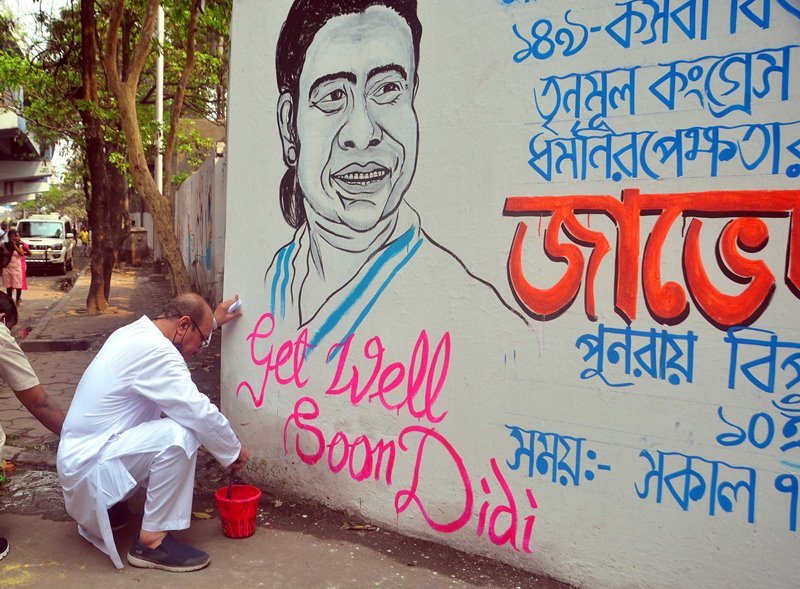 ১৪৯-কসবা
তৃনমূল কংগ্রেস
ধর্মনিরপেক্ষতার
জাভে
পুনরায়
১০ই
সময়:- সকাল ৭
Get Well
Soon Didi